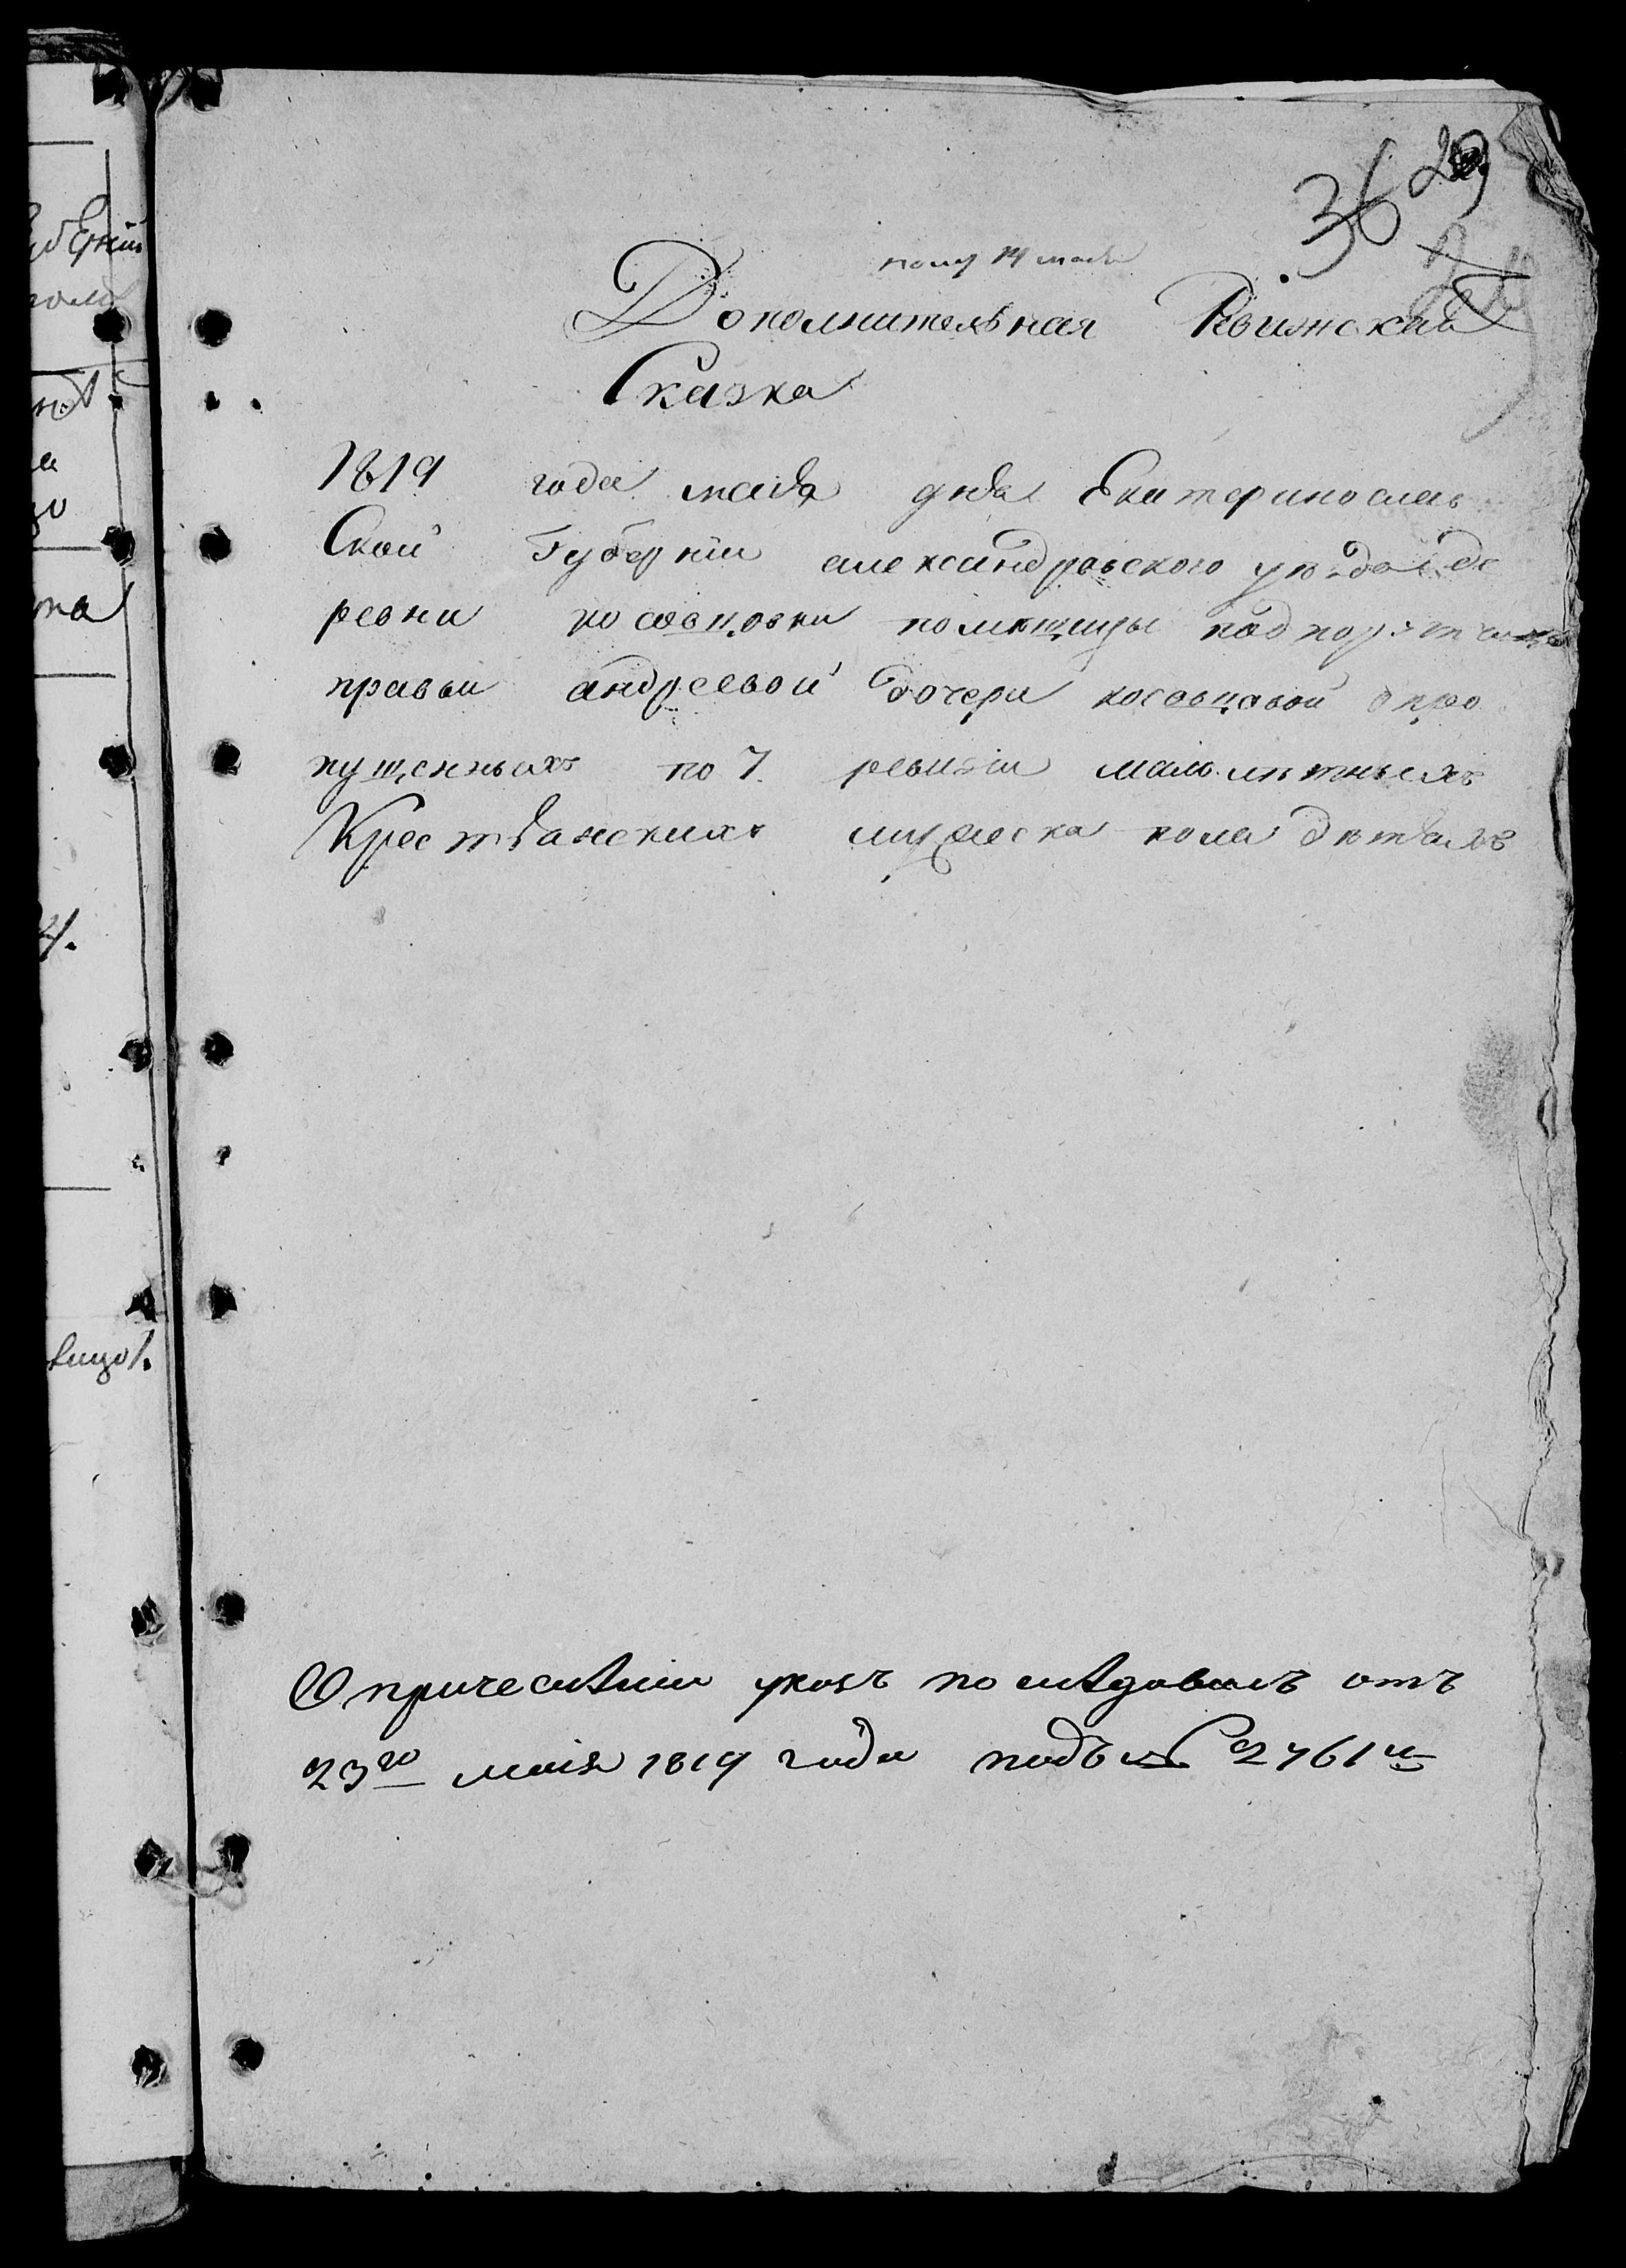 36 29
полу 14 мая
Дополнительная Ревижская
Сказка
1819 года мая дня Екатеринослав
Ской Губернии александровского уезда де
ревни косовцовки помещицы подпорутчицы
правьи андреевой дочери косовцовой о про
пущенныхъ по 7 ревизіи малолѣтныхъ
Крестьянскихъ мужеска пола дѣтяхъ
О причесленіи указъ последовалъ отъ
23го маія 1819 года подъ № 2761м